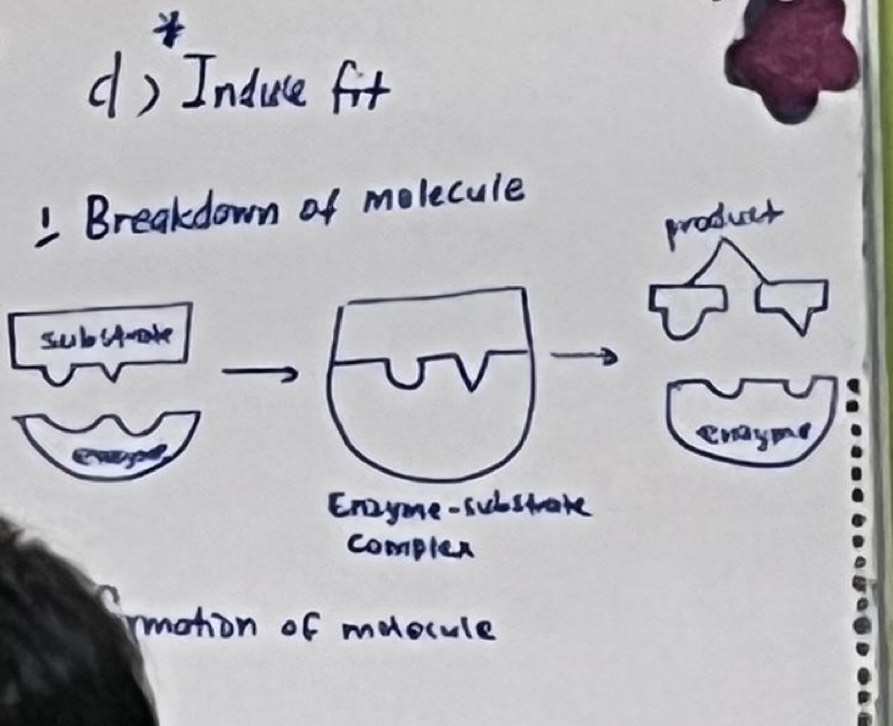 *
d) Induce fit
! Breakdown of molecule
product
substrate
enzyme
enzyme
Enzyme-substrate
complex
rmation of molecule